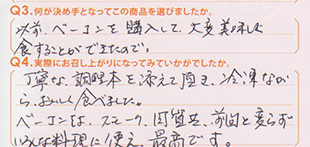 Q3.何が決め手となってこの商品を購入しましたか。
以前、ベーコンを購入して、大変美味しく
食することができたので。
Q4.実際にお召し上がりになってみていかがでしたか。
丁寧な、調理本を添えて頂き、冷凍なが
ら、おいしく食べました。
ベーコンは、スモーク、肉質共、前回と変らず
いろんな料理に使え、最高です。